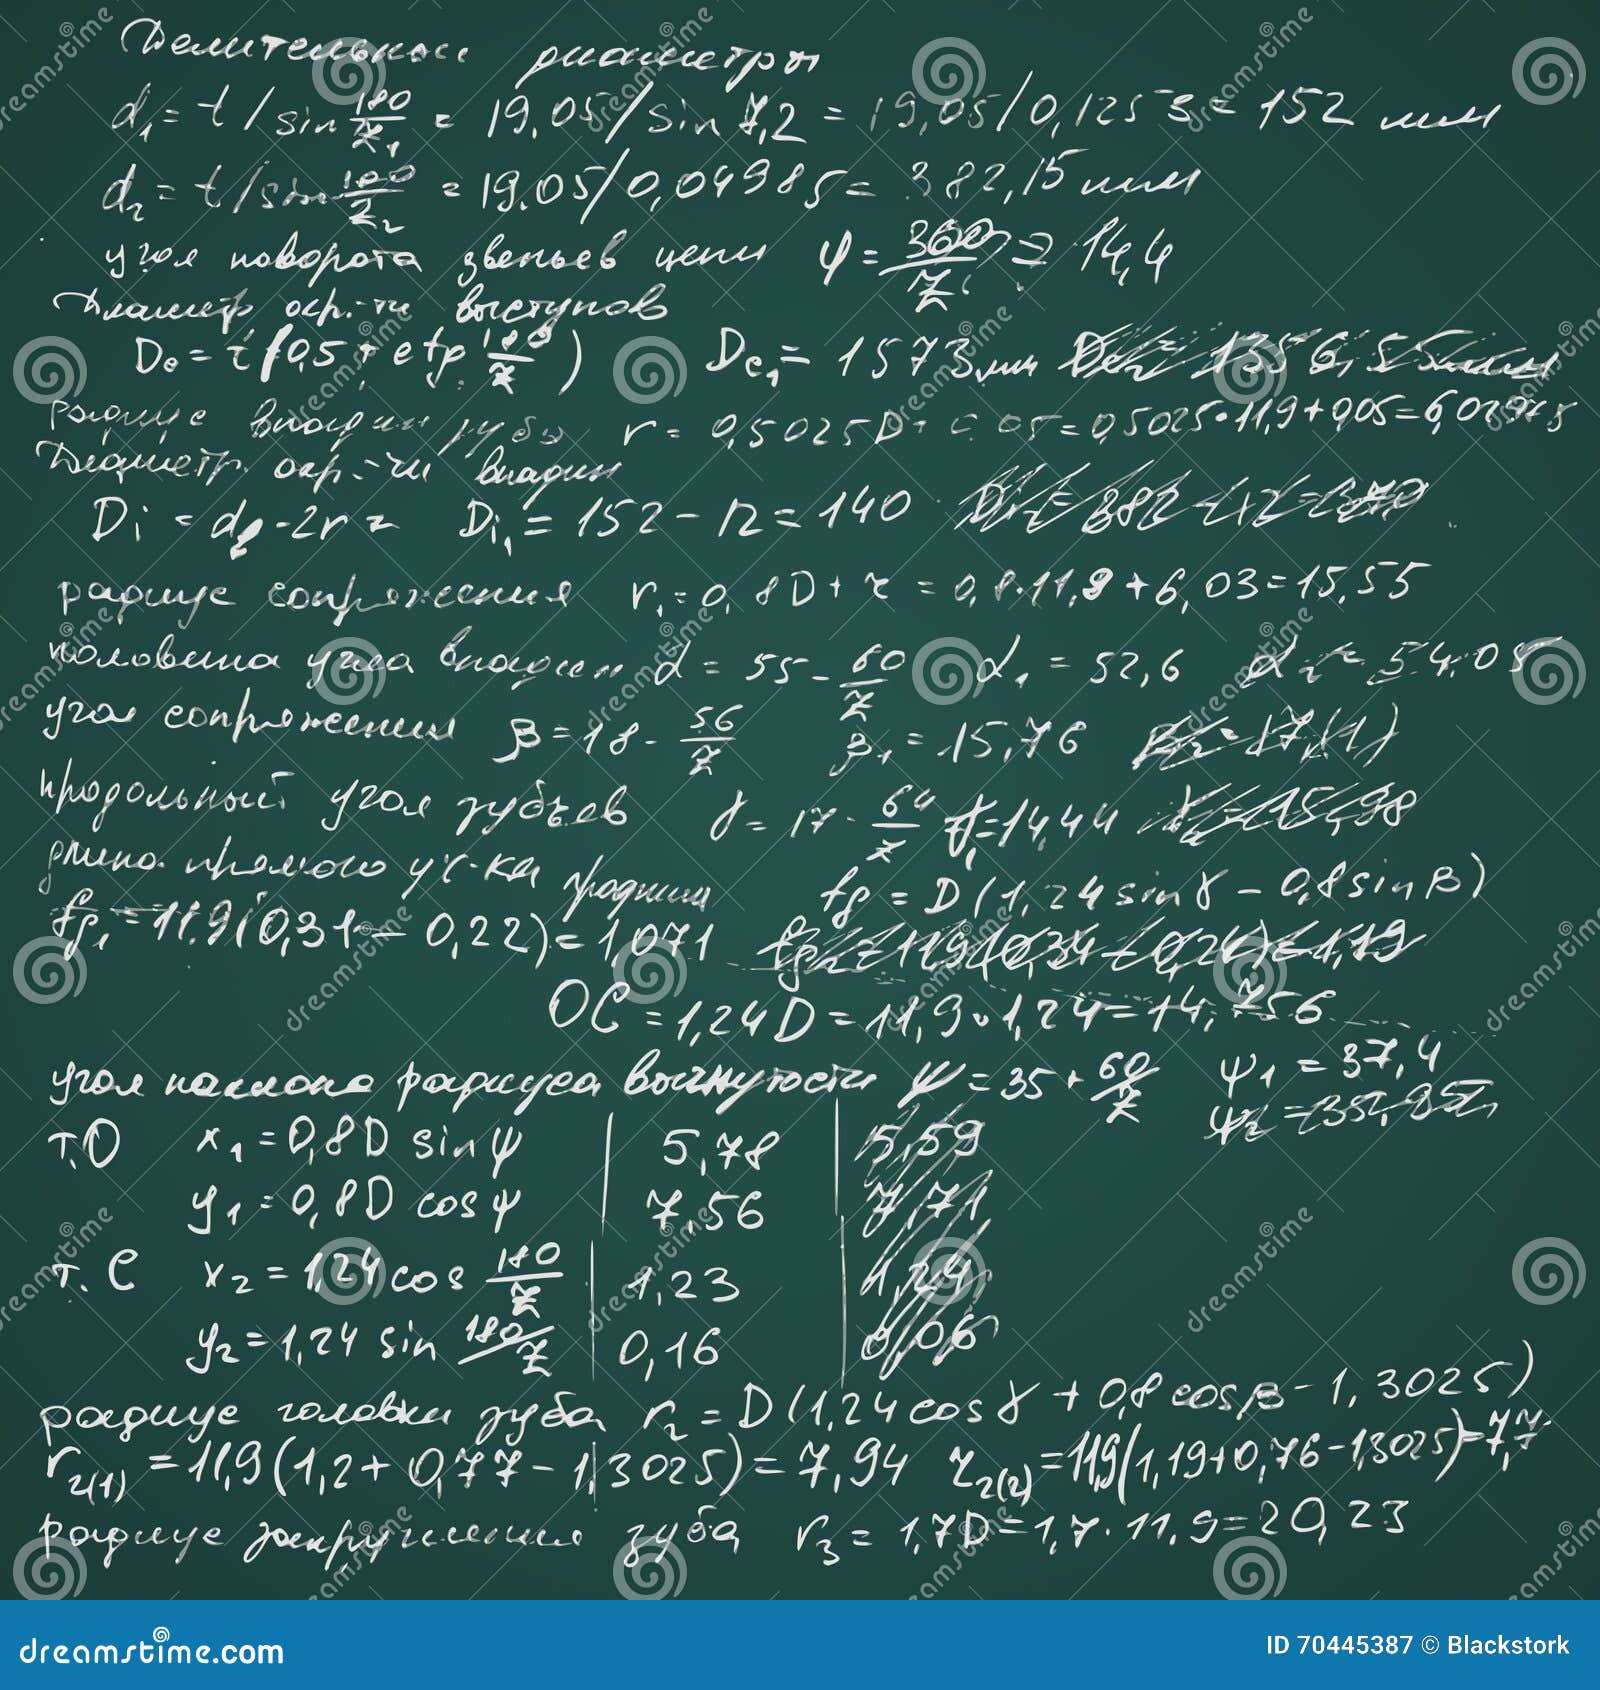 Делительные диаметры
d₁ = t / sin 180/z₁ = 19.05/sin 7,2 = 19,05/0,1253 = 152 мм
d₂ = t/sin 180/z₂ = 19.05/0,04985 = 382,15 мм
угол поворота звеньев цепи φ = 360/z = 14,4
Диаметр окр.-ти выступов
De = t (0,5 + ctg 180/z) De₁ = 1573 мм
радиус впадин зуба r = 0,5025D + 0.05 = 0,5025·11,9+0,05=6,02975
Диаметр. окр.-ти впадин
Di = d₂ - 2r = Di₁ = 152 - 12 = 140 Di₂ = 382 - 12 = 370
радиус сопряжения r₁ = 0,8D + r = 0,8·11,9 + 6,03 = 15,55
половина угла впадин α = 55 - 60/z α₁ = 52,6 α₂ = 54.05
угол сопряжения β = 18 - 56/z β₁ = 15,76 β₂ = 17,(1)
продольный угол зубьев γ = 17 - 64/z γ₁ = 14,44 γ₂ = 15,98
длина прямого уч-ка профиля fg = D(1,24 sin γ - 0,8 sin β)
fg₁ = 11.9(0,31 - 0,22) = 1,071 fg₂ = 11,9(0,34 - 0,24) = 1,19
OC = 1,24D = 11,9·1,24 = 14,756
угол наклона радиуса вогнутости ψ = 35 + 60/z ψ₁ = 37,4
ψ₂ = 35,95
т.О x₁ = 0,8D sin ψ | 5,78 | 5,59
y₁ = 0,8D cos ψ | 7,56 | 7,71
т. С x₂ = 1,24 cos 180/z | 1,23 | 1,24
y₂ = 1,24 sin 180/z | 0,16 | 0,06
радиус головки зуба r₂ = D(1,24 cos γ + 0,8 cos β - 1,3025)
r₂₍₁₎ = 11,9(1,2 + 0,77 - 1,3025) = 7,94 r₂₍₂₎ = 11,9(1,19+0,76-1,3025) = 7,7
радиус закругления зуба r₃ = 1,7D = 1,7·11,9 = 20,23
dreamstime.com
ID 70445387 © Blackstork